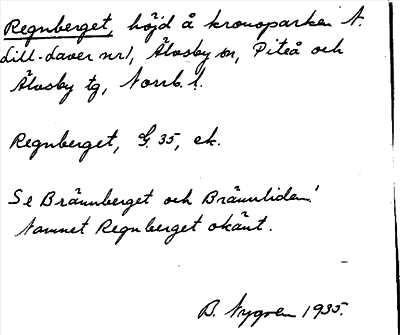 Regnberget, höjd å kronoparken N.
Lill-Laver nr 1, Älvsby sn, Piteå och
Älvsby tg, Norrb. l.
Regnberget, G. 35, ek.
Se Brännberget och Brännliden!
Namnet Regnberget okänt.
B. Nygren 1935.